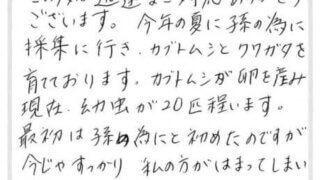 迅速な
ございます。今年の夏に孫の為に
採集に行き、カブトムシとクワガタを
育てております。カブトムシが卵を産み
現在、幼虫が20匹程います。
最初は孫の為にと初めたのですが
今じゃすっかり 私の方がはまってしまい